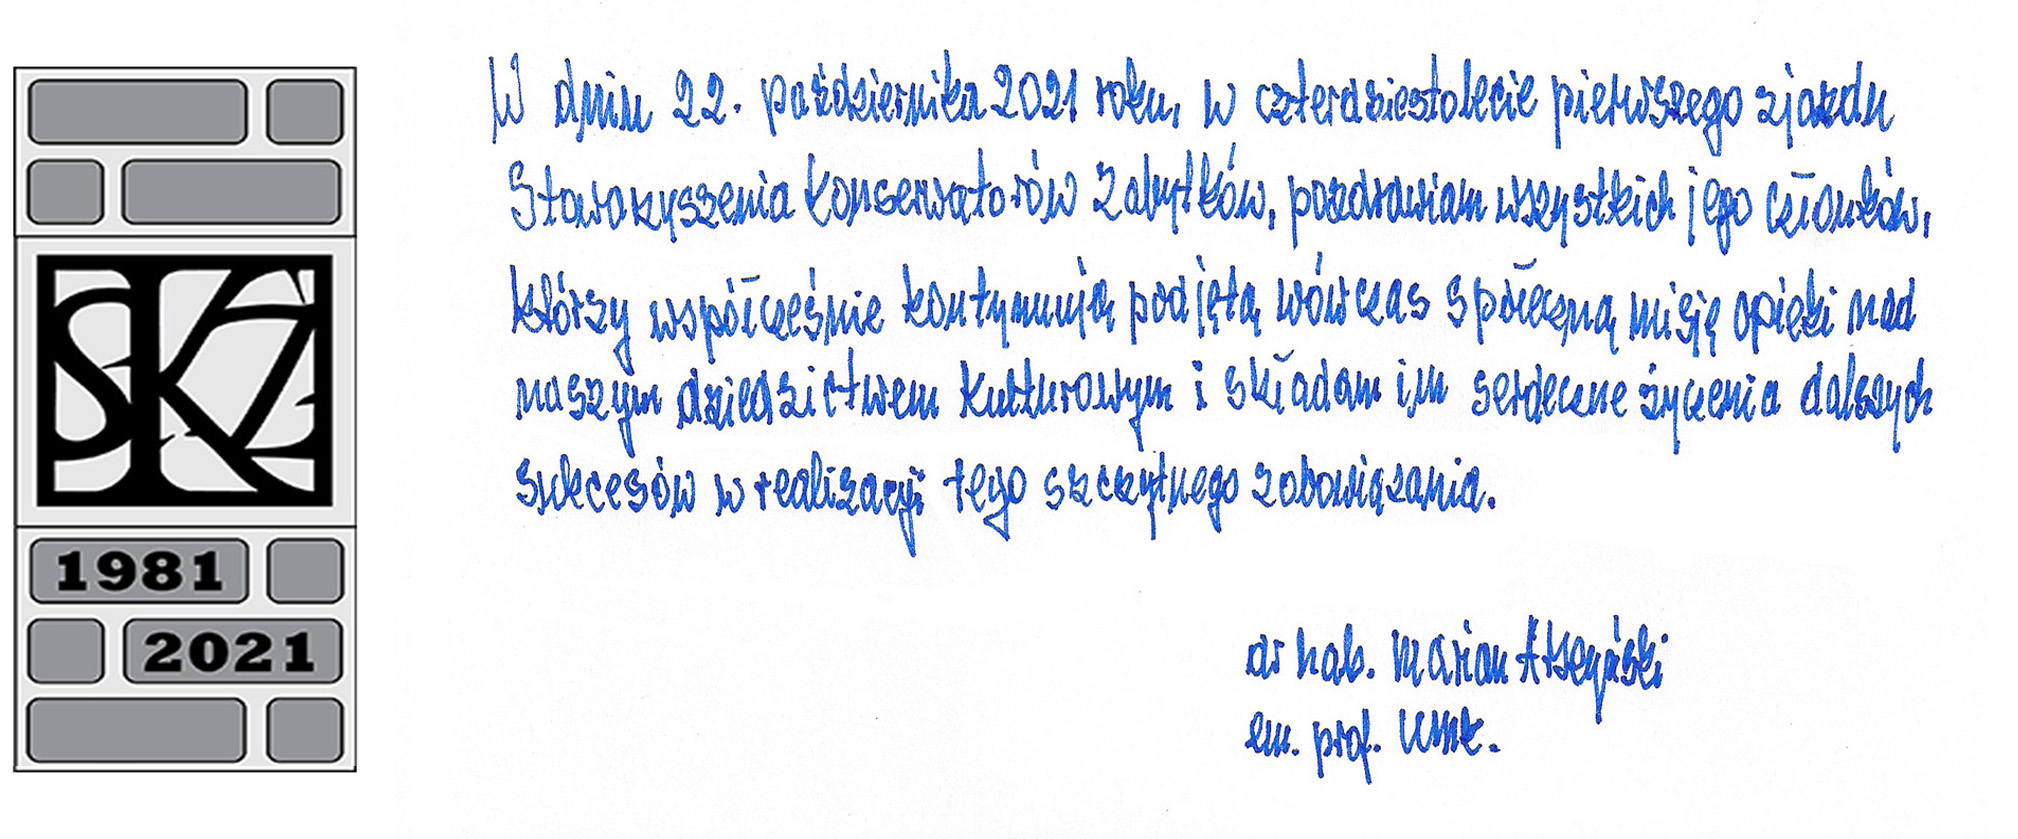 SKZ
1981
2021
W dniu 22. października 2021 roku, w czterdziestolecie pierwszego zjazdu
Stowarzyszenia Konserwatorów Zabytków, pozdrawiam wszystkich jego członków,
którzy współcześnie kontynuują podjętą wówczas społeczną misję opieki nad
naszym dziedzictwem kulturowym i składam im serdeczne życzenia dalszych
sukcesów w realizacji tego szczytnego zobowiązania.
dr hab. Marian Arszyński
em. prof. UMK.